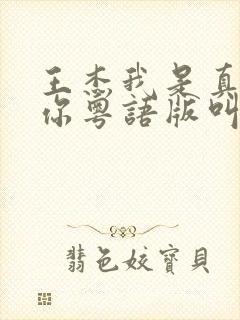 王杰我是真
你粤語版叫
翡色姣寶貝